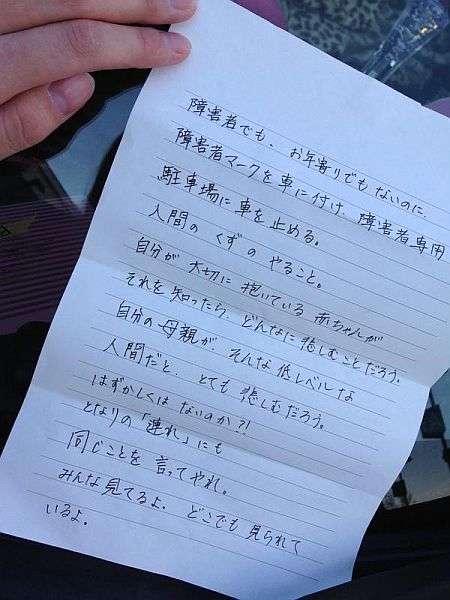 障害者でも、お年寄りでもないのに、
障害者マークを車に付け、障害者専用
駐車場に車を止める。
人間のくずのやること。
自分が大切に抱いている赤ちゃんが
それを知ったら、どんなに悲しむことだろう。
自分の母親が、そんな低レベルな
人間だと、とても悲しむだろう。
はずかしくはないのか?!
となりの「連れ」にも
同じことを言ってやれ。
みんな見てるよ。どこでも見られて
いるよ。